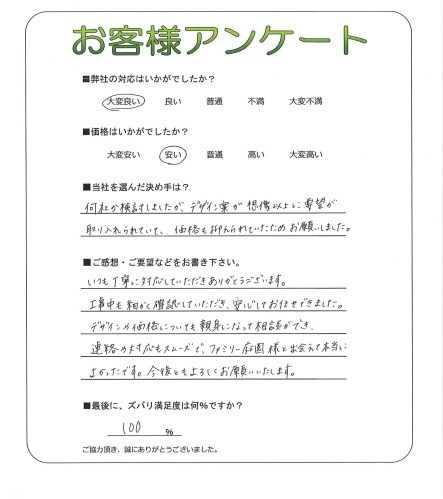 お客様アンケート
■弊社の対応はいかがでしたか?
大変良い 良い 普通 不満 大変不満
■価格はいかがでしたか?
大変安い 安い 普通 高い 大変高い
■当社を選んだ決め手は?
何社か検討しましたが、デザイン案が想像以上に要望が
取り入れられていて、価格も抑えられていたためお願いしました。
■ご感想・ご要望などをお書き下さい。
いつも丁寧に対応していただきありがとうございます。
工事中も細かく確認していただき、安心してお任せできました。
デザインや価格についても親身になって相談ができ、
連絡の対応もスムーズで、ファミリー庭園様と出会えて本当に
よかったです。今後ともよろしくお願いいたします。
■最後に、ズバリ満足度は何%ですか?
100 %
ご協力頂き、誠にありがとうございました。